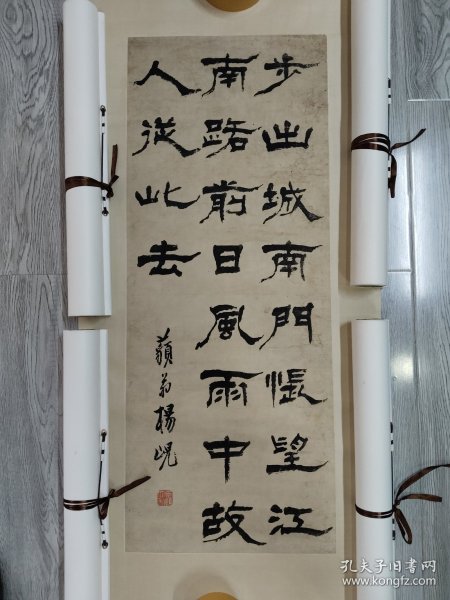 步出城南門悵望江
南路前日風雨中故
人從此去
藐翁楊峴
孔夫子旧书网
www.kongfz.com